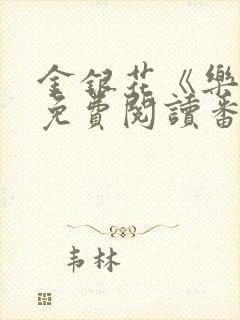 金銀花《樂
免費閱讀番
韦林